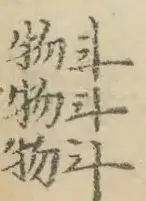 物斗
物斗
物斗